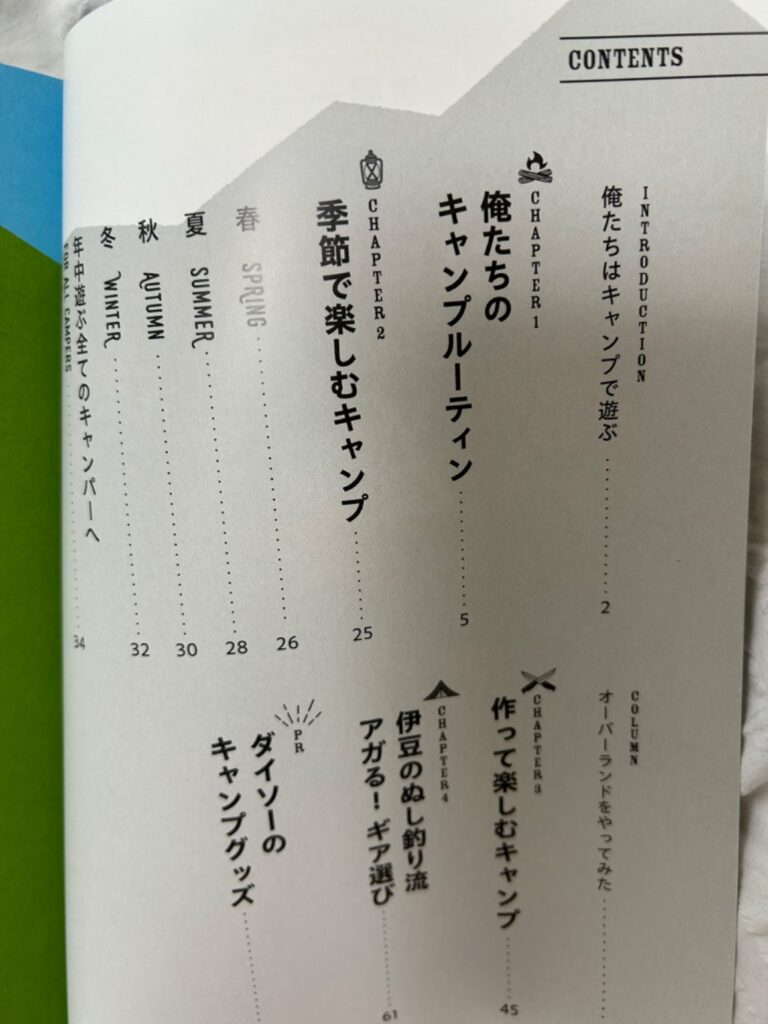 CONTENTS
INTRODUCTION
俺たちはキャンプで遊ぶ
2
CHAPTER 1
俺たちの
キャンプルーティン
5
CHAPTER 2
季節で楽しむキャンプ
25
春 SPRING
26
夏 SUMMER
28
秋 AUTUMN
30
冬 WINTER
32
年中遊ぶ全てのキャンパーへ
FOR ALL CAMPERS
34
COLUMN
オーバーランドをやってみた
CHAPTER 3
作って楽しむキャンプ
45
CHAPTER 4
伊豆のぬし釣り流
アガる！ギア選び
61
PR
ダイソーの
キャンプグッズ